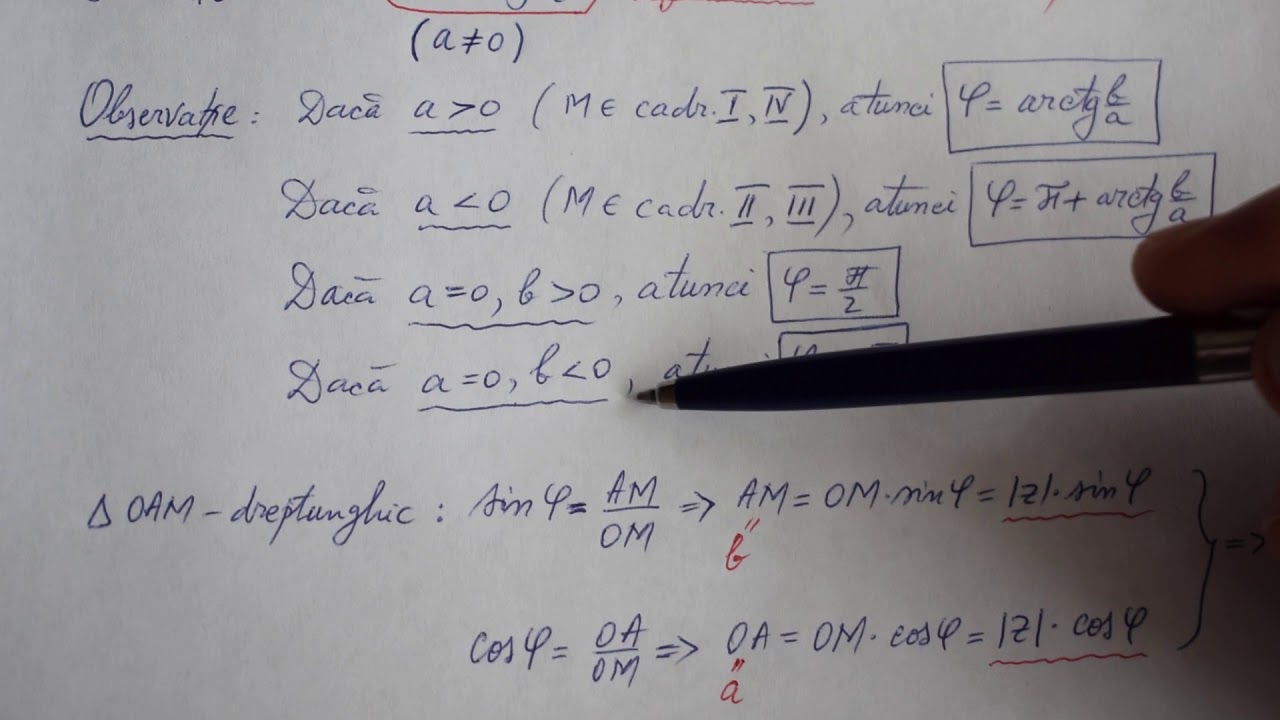 (a≠0)
Observație: Dacă a>0 (M∈ cadr. I, IV), atunci φ= arctg b/a
Dacă a<0 (M∈ cadr. II, III), atunci φ=π+ arctg b/a
Dacă a=0, b>0, atunci φ= π/2
Dacă a=0, b<0,
Δ OAM – dreptunghic: sin φ= AM/OM => AM = OM·sin φ = |z|·sin φ
" b
cos φ = OA/OM => OA = OM· cos φ = |z|· cos φ
" a
=>